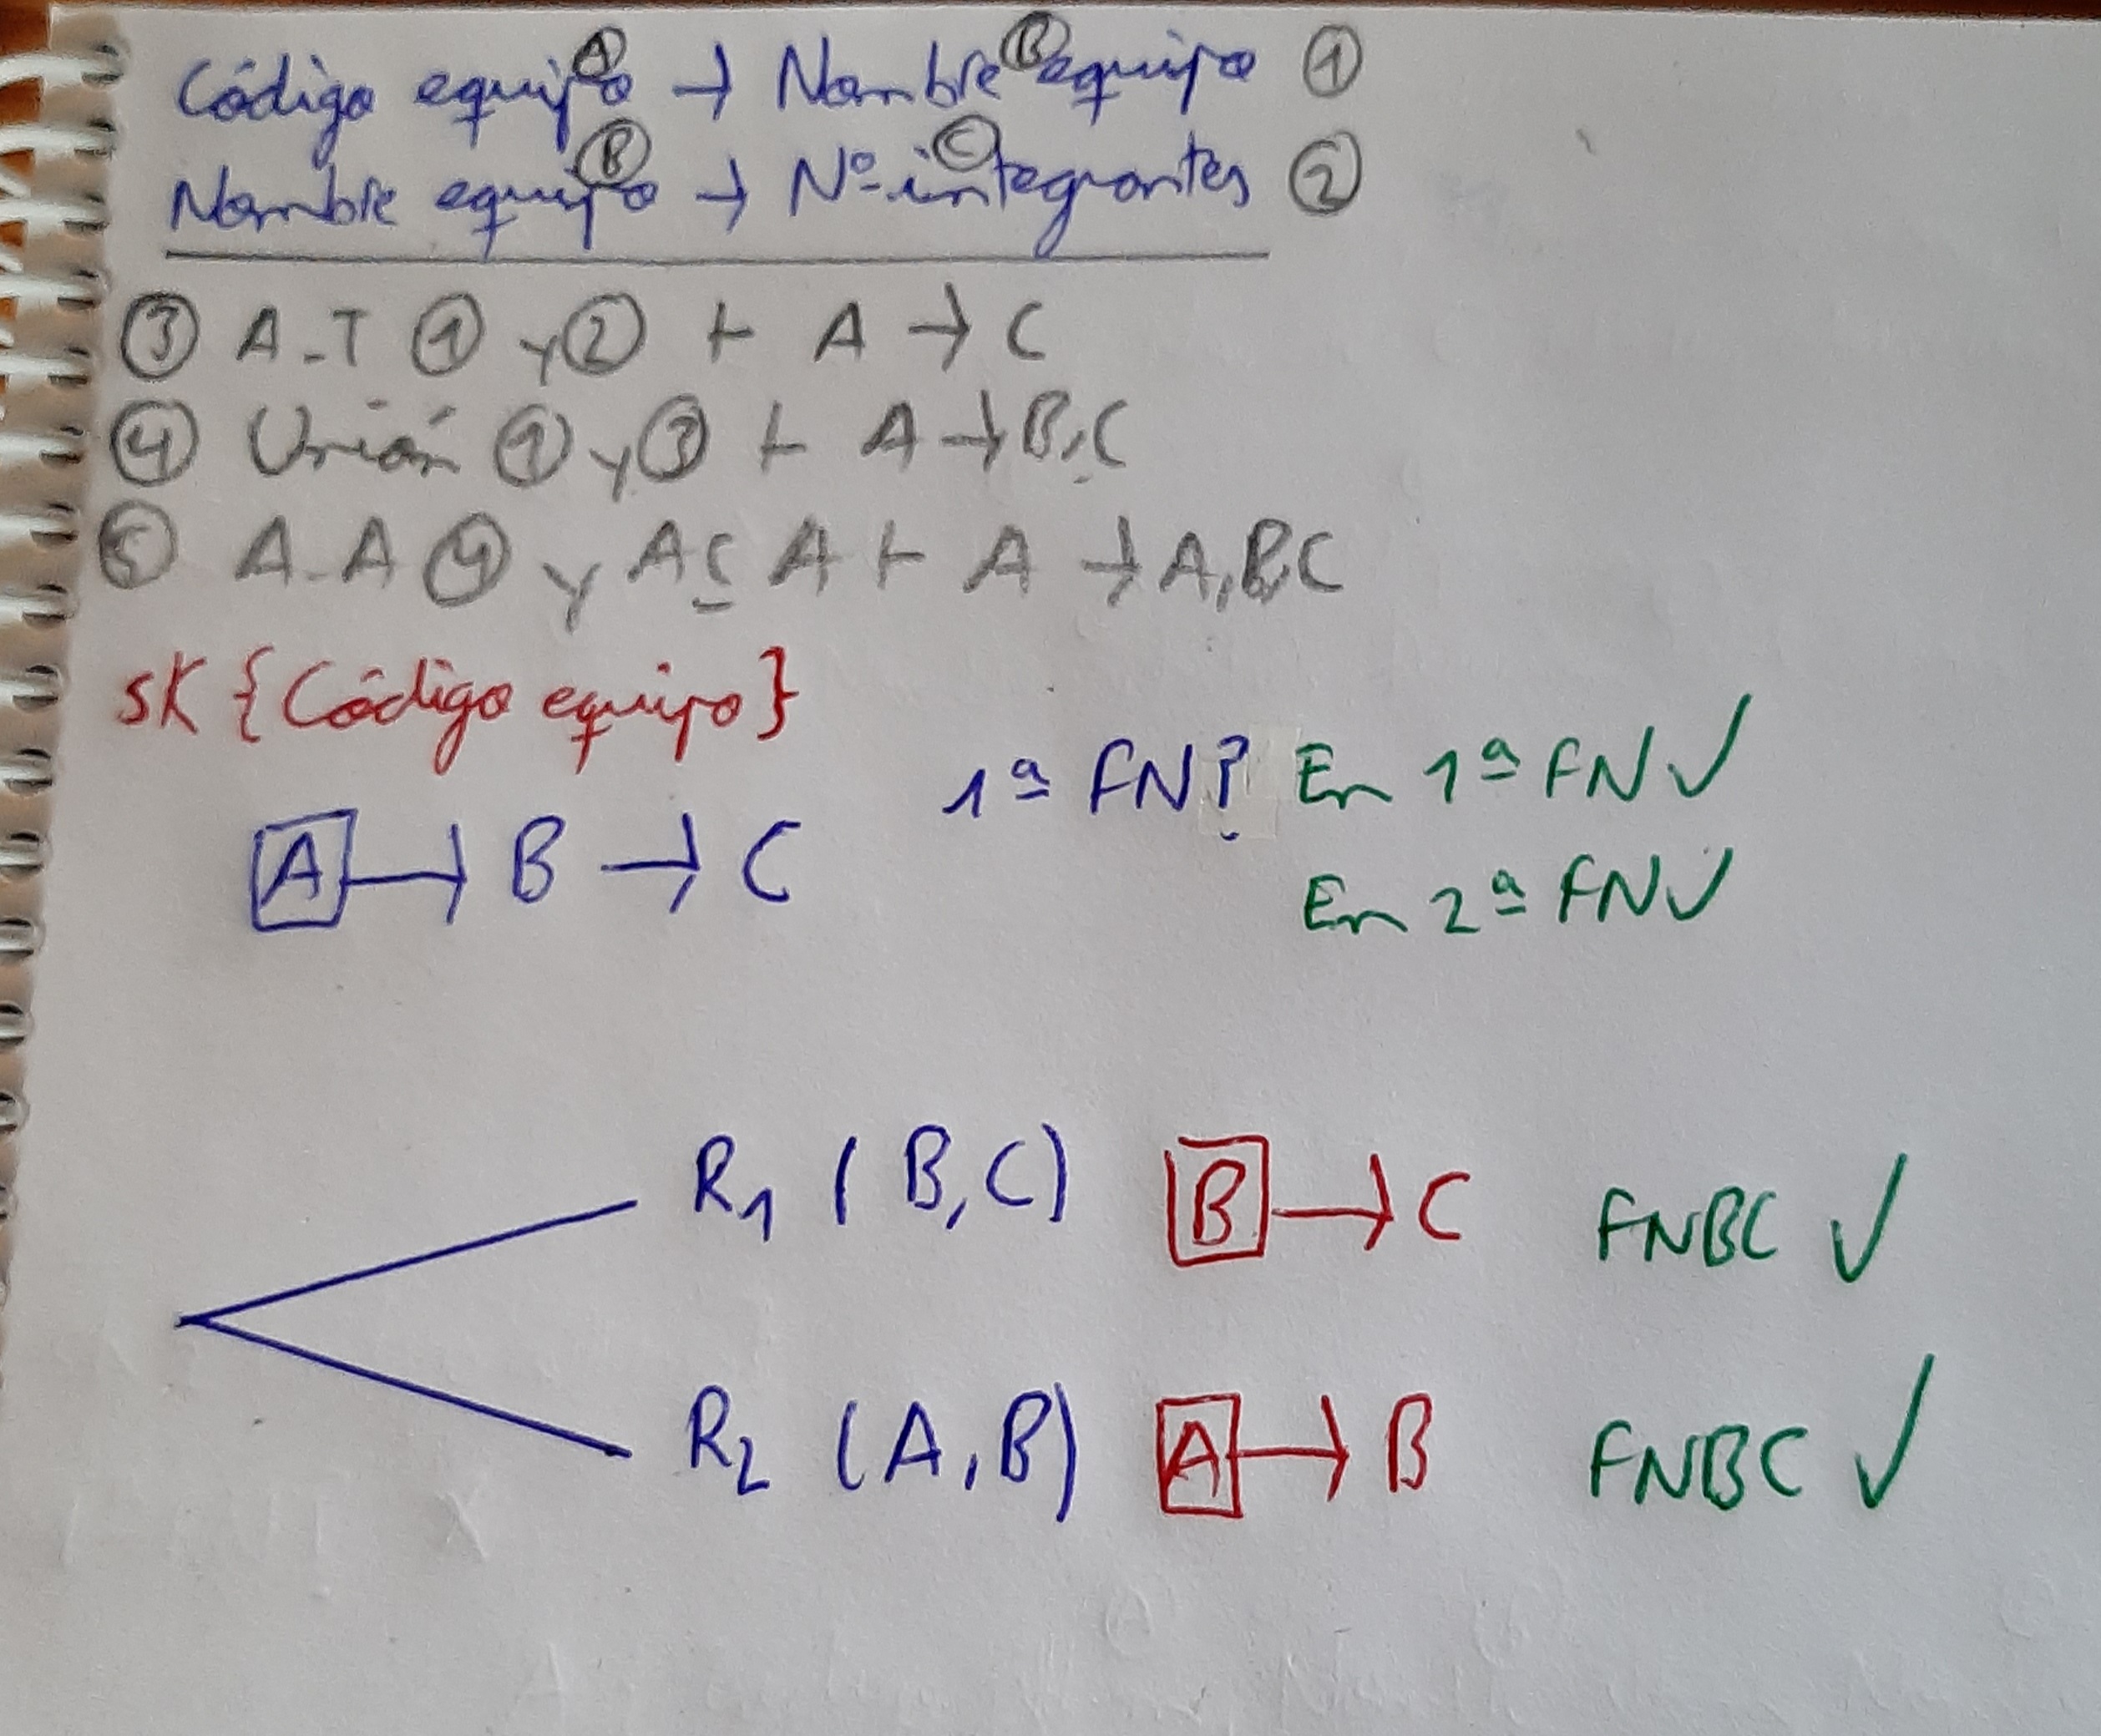 Código equipo Ⓐ → Nombre equipo Ⓑ ①
Nombre equipo Ⓑ → Nº integrantes Ⓒ ②
③ A-T ① y ② ⊢ A → C
④ Unión ① y ③ ⊢ A → B,C
⑤ A-A ④ y A ⊆ A ⊢ A → A,B,C
SK {Código equipo}
1ª FN? En 1ª FN ✓
A → B → C
En 2ª FN ✓
R1 (B,C) B → C FNBC ✓
R2 (A,B) A → B FNBC ✓